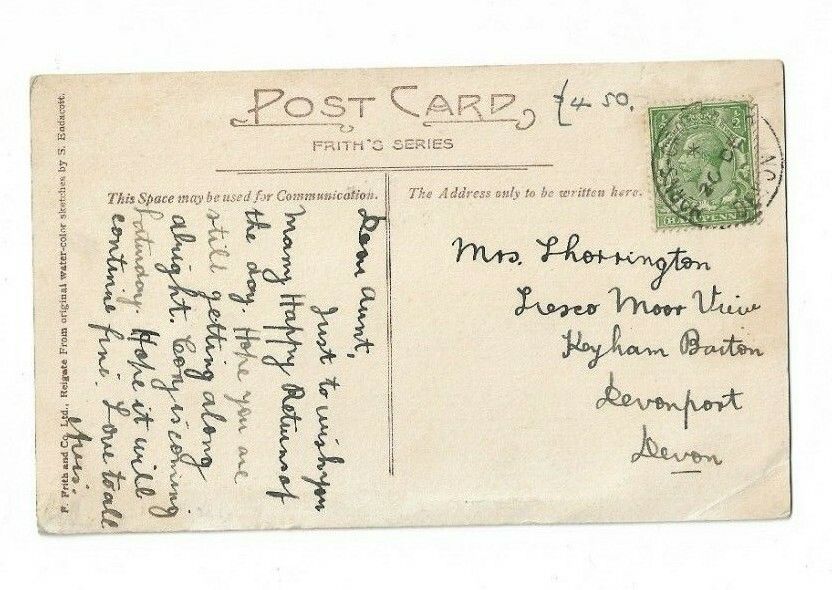 POST CARD
£4 50.
FRITH'S SERIES
This Space may be used for Communication.
The Address only to be written here.
Dear Aunt,
Just to wish you
Many Happy Returns of
the day. Hope you are
still getting along
alright. Cong is coming
Saturday. Hope it will
continue fine. Love to all
Avis.
Mrs. Thorrington
Tresco Moor View
Keyham Barton
Devonport
Devon
F. Frith and Co. Ltd., Reigate From original water-color sketches by S. Endacott.